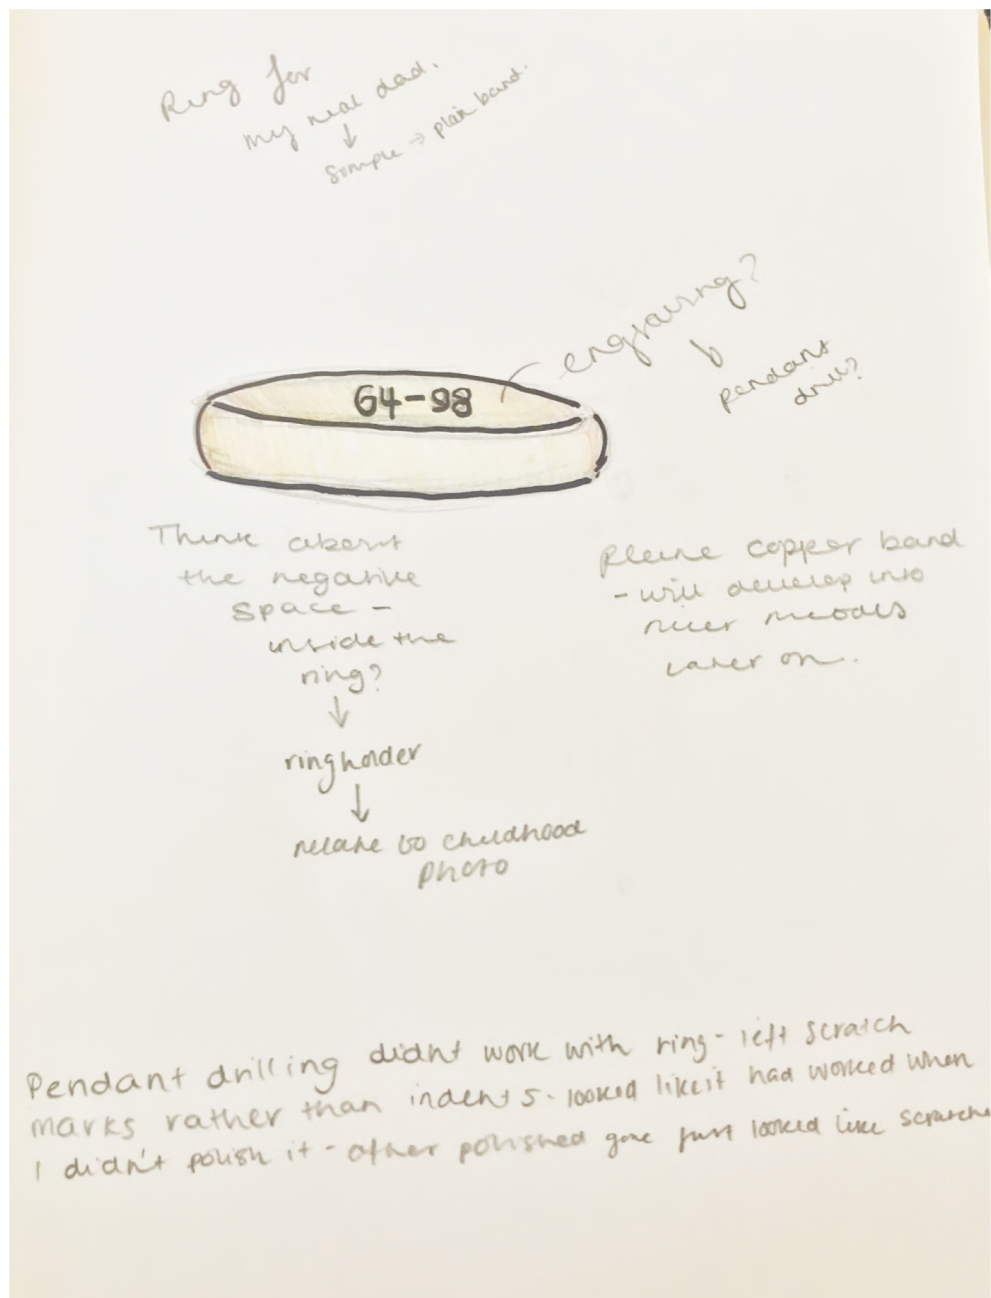 Ring for
my real dad.
↓
Simple → plain band.
engraving?
↓
pendant
drill?
64-98
Think about
the negative
space -
inside the
ring?
↓
ringholder
↓
relate to childhood
photo
copper band
- will develop into
nicer metals
later on.
Pendant drilling didnt work with ring - left scratch
marks rather than indents. looked like it had worked when
I didn't polish it - after polished just looked like scratche